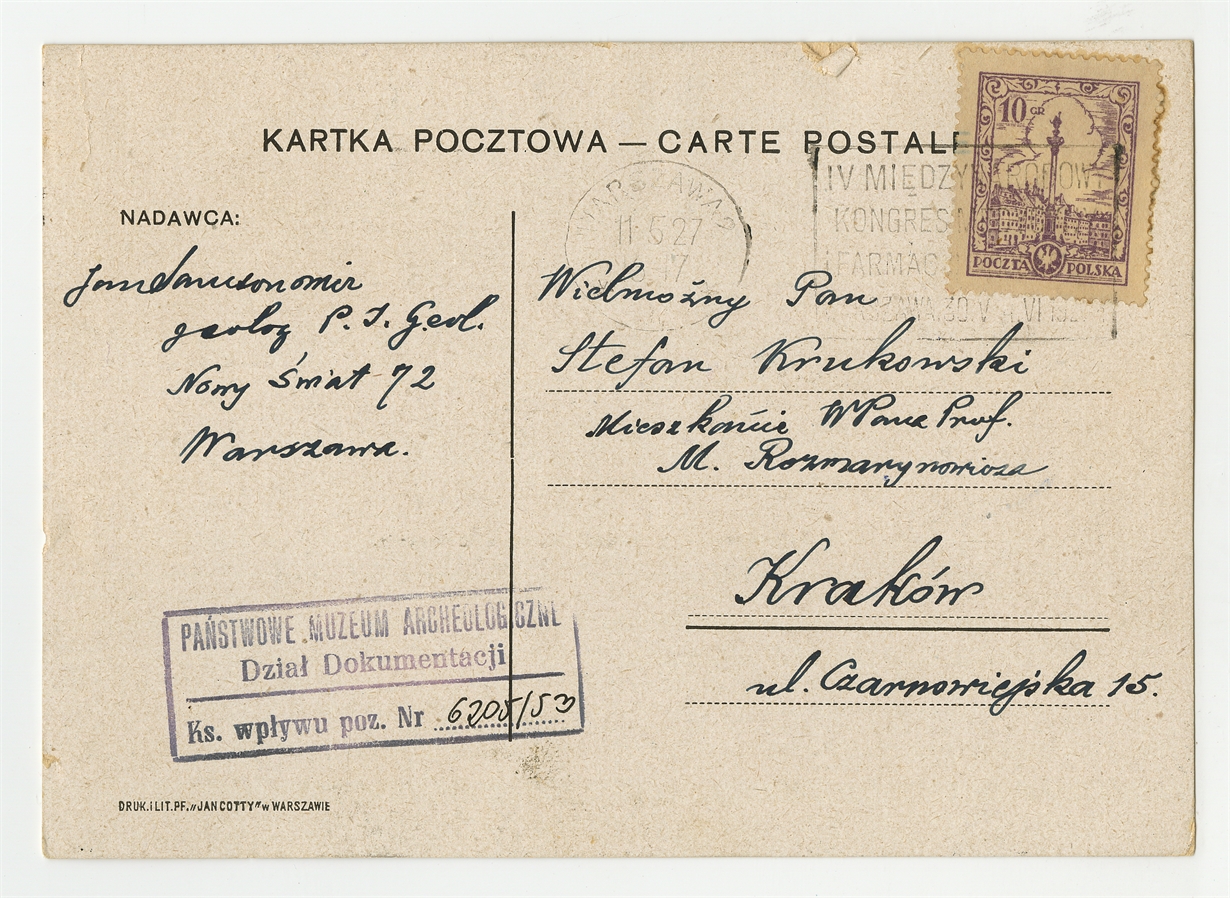 KARTKA POCZTOWA — CARTE POSTALE
10 GR
POCZTA POLSKA
WARSZAWA
11·5 27
17
IV MIĘDZYNARODOWY
KONGRES
I FARMAC
30.V VI
NADAWCA:
Jan
geolog P. I. Geol.
Nowy Świat 72
Warszawa.
Wielmożny Pan
Stefan Krukowski
Mieszkanie WPana Prof.
M. Rozmarynowicza
Kraków
ul. Czarnowiejska 15.
PAŃSTWOWE MUZEUM ARCHEOLOGICZNE
Dział Dokumentacji
Ks. wpływu poz. Nr 6205/53
DRUK. i LIT. PF. „JAN COTTY" w WARSZAWIE